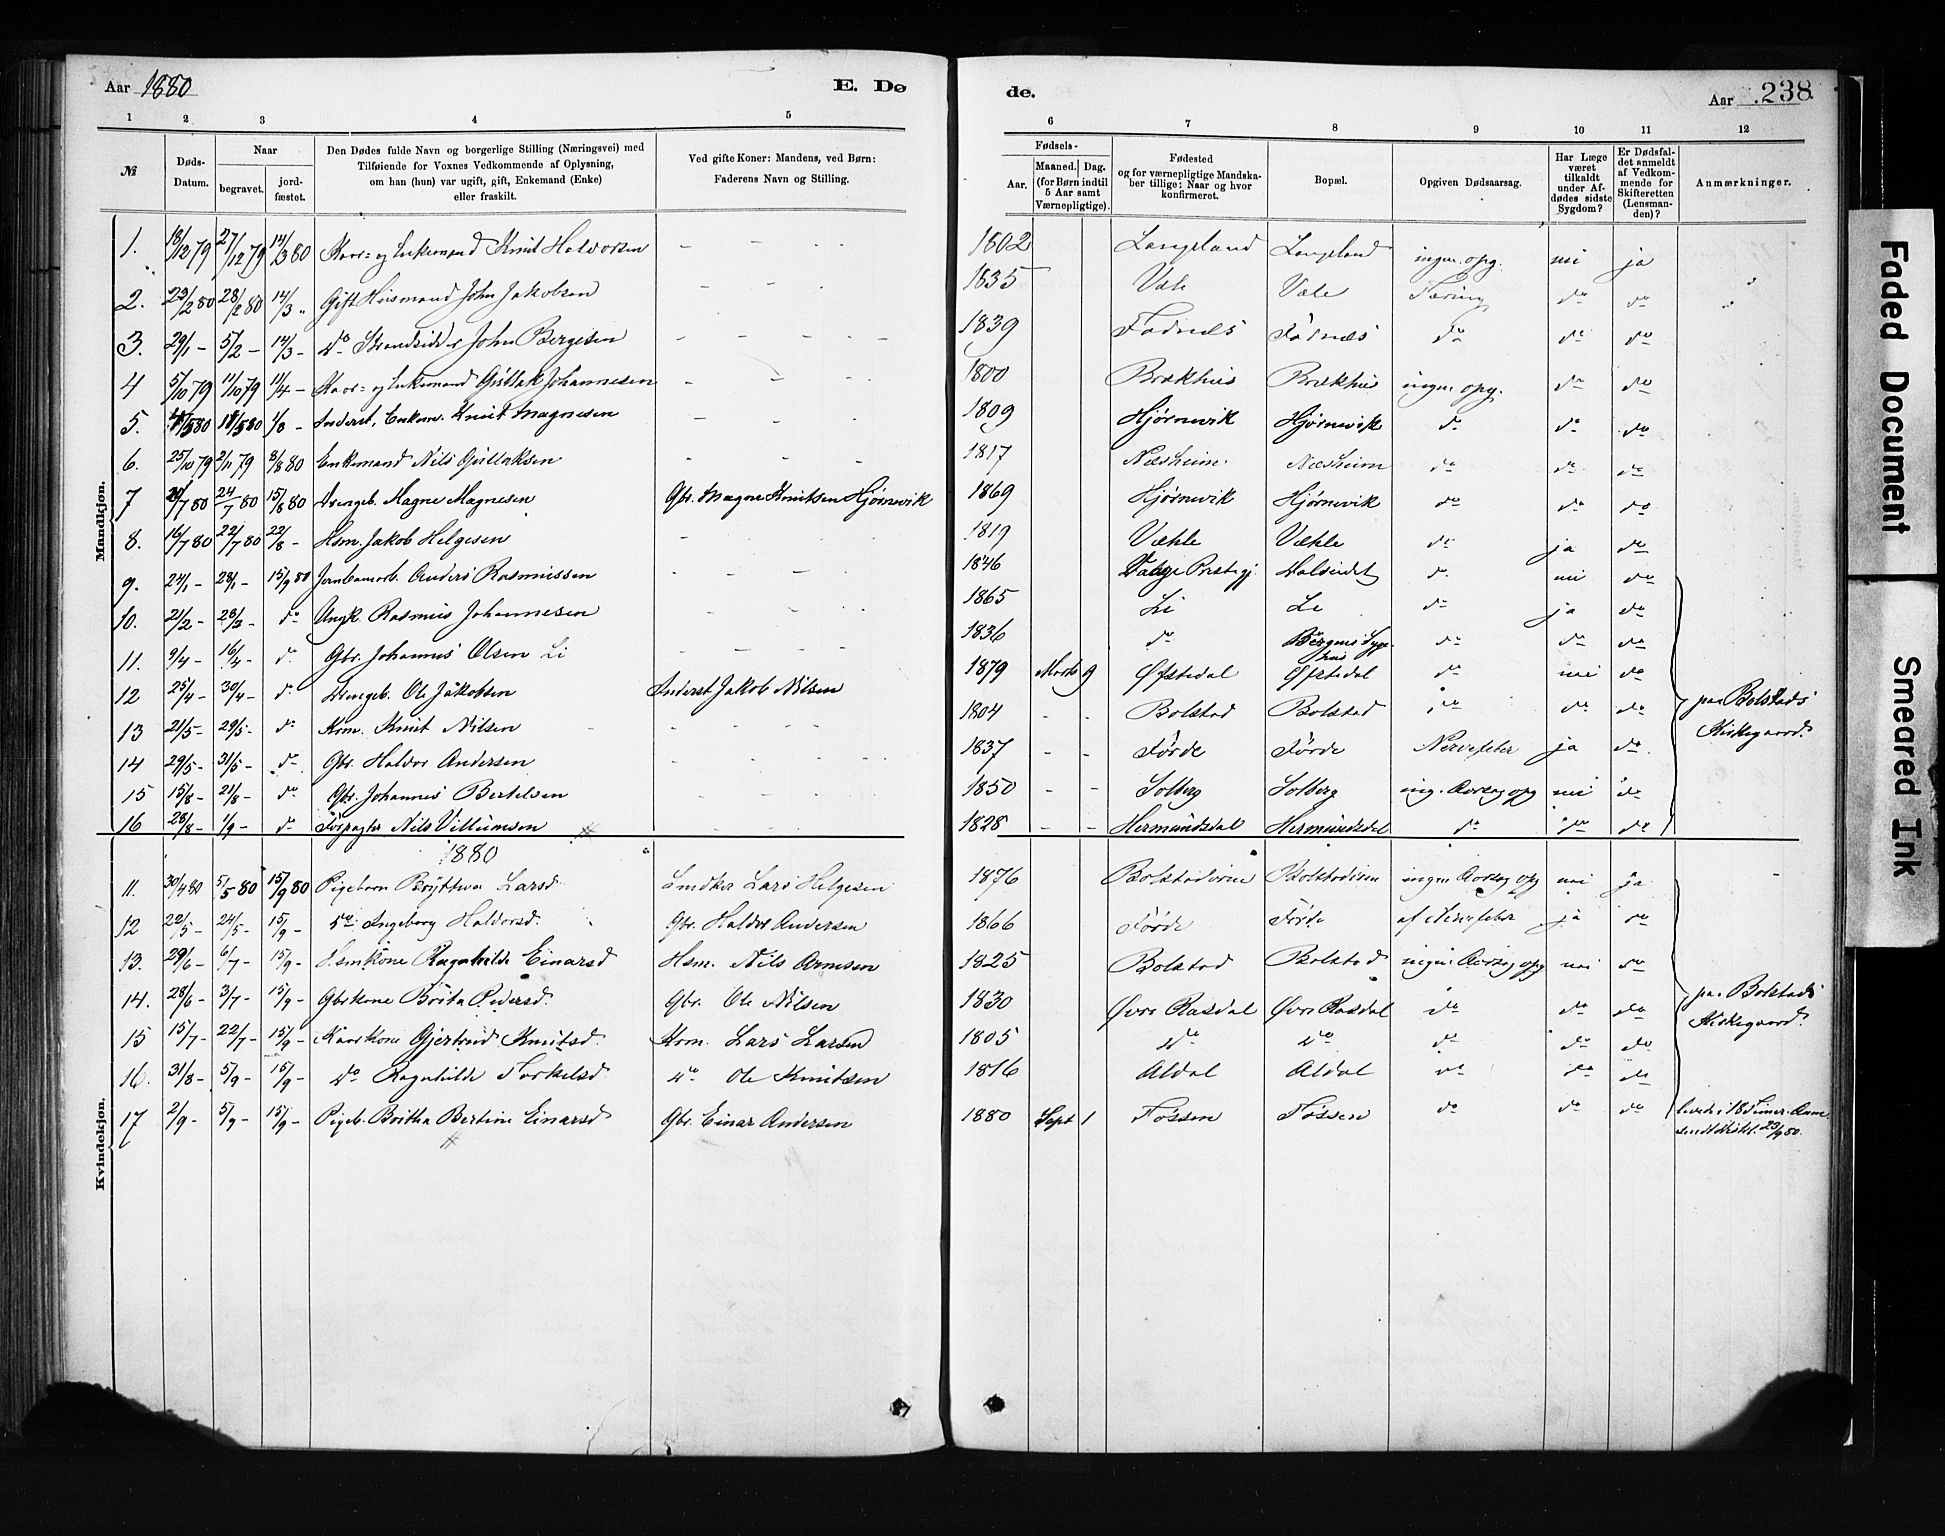 Aar 1880 E. Dø
de. Aar 238
1 2 3 4 5
6 7 8 9 10 11 12
№ Døds-Datum. Naar begravet. jord-fæstet. Den Dødes fulde Navn og borgerlige Stilling (Næringsvei) med Tilføiende for Voxnes Vedkommende af Oplysning, om han (hun) var ugift, gift, Enkemand (Enke) eller fraskilt. Ved gifte Koner: Mandens, ved Børn: Faderens Navn og Stilling.
Fødsels- Aar. Maaned. Dag. (for Børn indtil 5 Aar samt Værnepligtige). Fødested og for værnepligtige Mandskaber tillige: Naar og hvor konfirmeret. Bopæl. Opgiven Dødsaarsag. Har Læge været tilkaldt under Afdødes sidste Sygdom? Er Dødsfaldet anmeldt af Vedkommende for Skifteretten (Lensmanden)? Anmærkninger.
Mandkjøn.
1. 18/12 79 27/12 79 14/3 80 Kaar- og Enkemand Knut Halvorsen - - - 1802 Langeland Langeland ingen opg. nei ja
2. 23/2 80 28/2 80 14/3 " Gift Husmand John Jakobsen - - - 1835 Væle Væle Tæring do do
3. 29/1 - 5/2 - 14/3 - do Strandsidder John Bergesen - - - - 1839 Fadnæs Fadnæs do do do
4 5/10 79 11/10 79 11/4 - Kaar- og Enkemand Gullak Johannesen - - - 1800 Brækhus Brækhus ingen opg. do do
5. 80 80 1/8 - Inderst, Enkem. Knut Magnesen - - 1809 Hjørnevik Hjørnevik do do do
6. 25/10 79 2/11 79 8/8 80 Enkemand Nils Gullaksen - - - 1817 Næsheim Næsheim do do do
7 /7 80 24/7 80 15/8 80 Drengeb. Magne Magnesen Gbr. Magne Knutsen Hjørnevik 1869 Hjørnevik Hjørnevik do do do
8. 16/7 80 22/7 80 22/8 - Hsm. Jakob Helgesen - - - 1819 Væhle Væhle do ja do
9. 24/1 - 28/1 - 15/9 80 Jernbanearb. Anders Rasmussen - - - 1846 Præstegj. do nei do
10. 21/2 - 23/3 - do Ungk. Rasmus Johannesen - - - 1865 Li Li do ja do
11. 9/4 - 16/4 - do Gbr. Johannes Olsen Li - - - 1836 do Bergens Sygehus do do do
12 25/4 - 30/4 - do Drengeb. Ole Jakobsen Inderst Jakob Nilsen 1879 Marts 9 Øfstedal Øfstedal do nei do
13 21/5 - 29/5 - do Krm. Knut Nilsen - - - - 1804 - - Bolstad Bolstad do do do
14 29/5 - 31/5 - do Gbr. Haldor Andersen - - - - 1837 - - Førde Førde Nervefeber ja do
15 15/8 - 21/8 - do Gbr. Johannes Bertelsen - - - 1850 - - Solberg Solberg ing. Aarsag opg nei do
16 28/8 - 1/9 - do Forpagter Nils Villumsen - - - 1828 - - Hermundsdal Hermundsdal do do do
paa Bolstads Kirkegaard.
1880
Kvindekjøn.
11. 30/4 80 5/5 80 15/9 80 Pigebarn Larsd. Lars Helgesen 1876 Bolstadøren Bolstadøren ingen Aarsag opg nei ja
12 22/5 - 24/5 - 15/9 - do Ingeborg Haldorsd. Gbr. Haldor Andersen 1866 Førde Førde af Nervefeber ja do
13. 29/6 - 6/7 - 15/9 - Hsmkone Ragnhilde Einarsd Hsm. Nils Arnesen 1825 Bolstad Bolstad ingen Aarsag opg nei do
14. 28/6 - 3/7 - 15/9 - Gbrkone Brita Pedersd. Gbr. Ole Nilsen 1830 Øvre Rasdal Øvre Rasdal do do do
15 15/7 - 22/7 - 15/9 - Kaarkone Gjertrud Knutsd. Krm. Lars Larsen 1805 do do do do do
16. 31/8 - 5/9 - 15/9 - do Ragnhilde Torkelsd do Ole Knutsen 1816 Aldal Aldal do do do
17 2/9 - 5/9 - 15/9 - Pigeb. Britha Bertine Einarsd Gbr. Einar Andersen 1880 Sept 1 Fossen Fossen do do do levede i 18 Timer. Anm. 23/9 80.
paa Bolstads Kirkegaard.
Faded Document
Smeared Ink